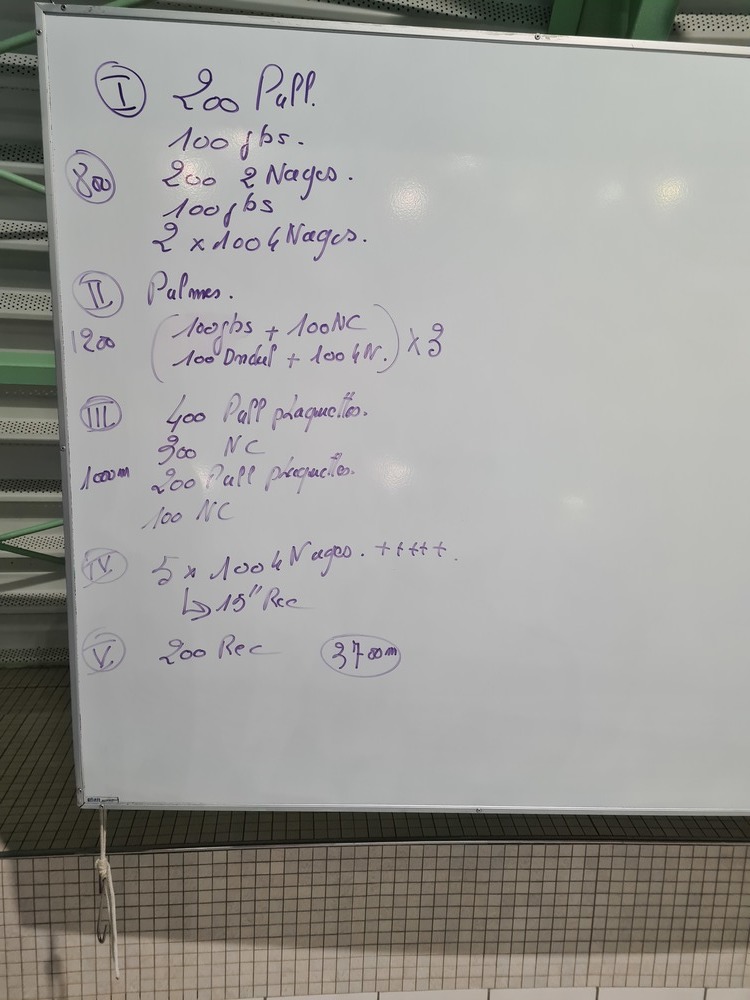 I 200 Pull.
100 jbs.
800 200 2 Nages.
100 jbs
2 x 100 4 Nages.
II Palmes.
1200 (100 jbs + 100 NC
100 Ondul + 100 4 N.) x 3
III 400 Pull plaquettes.
300 NC
1000m 200 Pull plaquettes.
100 NC
IV. 5 x 100 4 Nages. +++++.
↳ 15" Rec
V. 200 Rec 3700m